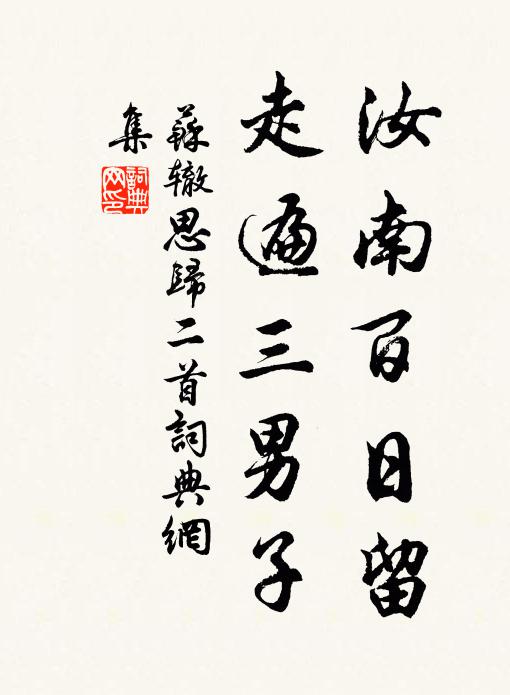 汝南百日留
走遍三男子
蘇辙思歸二首詞典網
集
詞典网印